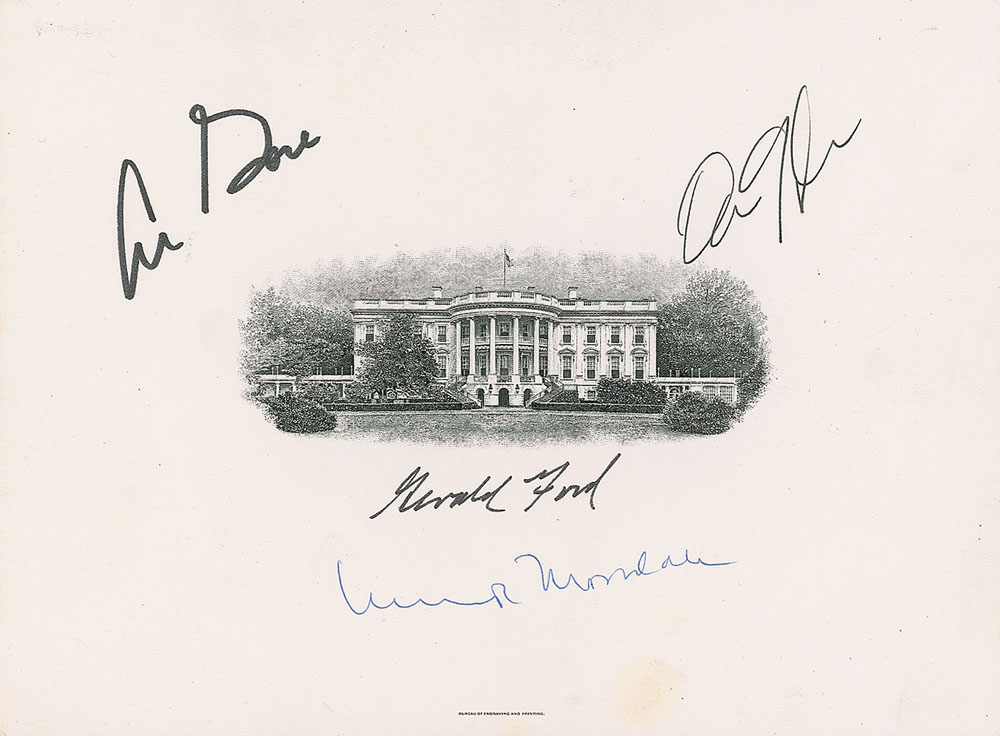 Al Gore
Dan Quayle
Gerald Ford
Walter Mondale
BUREAU OF ENGRAVING AND PRINTING.